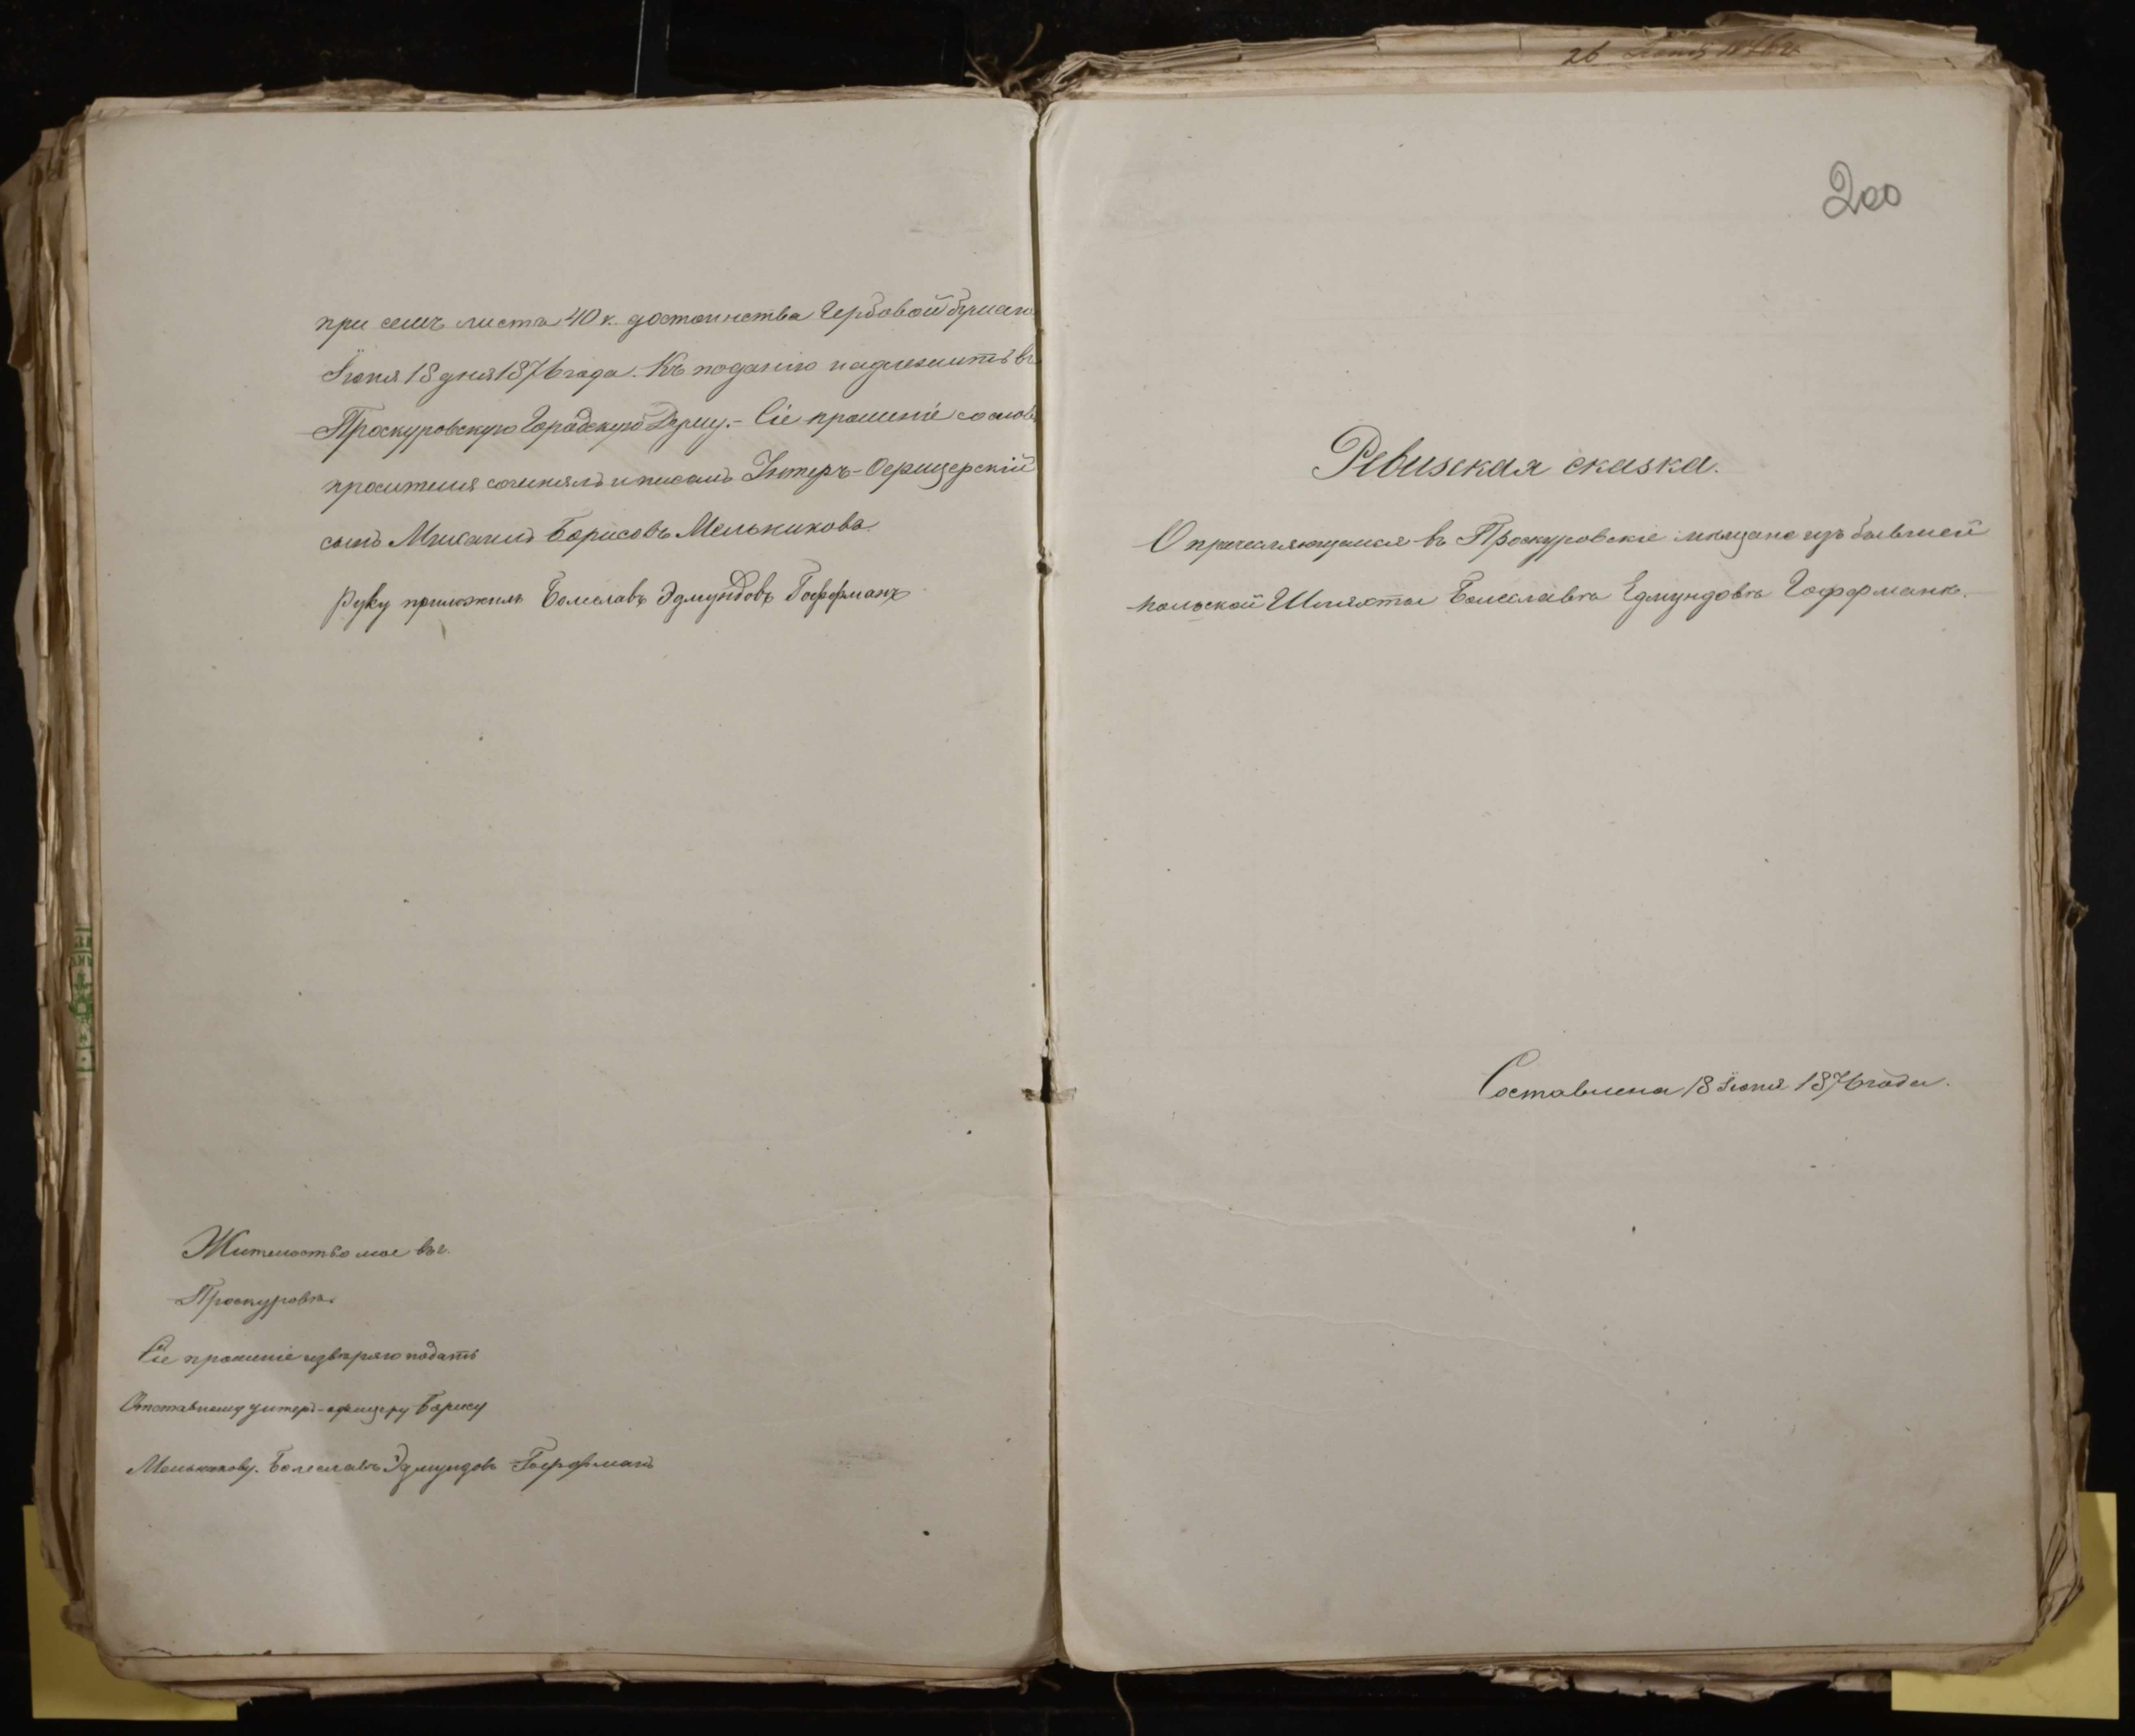 при семъ листа 40 к. достоинства Гербовой бумаги
Іюня 18 дня 1876 года. Къ поданію надлежитъ въ
Проскуровскую Городскую Думу.- Сіе прошеніе со словъ
просителя сочинялъ и писалъ Унтеръ-Офицерскій
сынъ Михаилъ Борисовъ Мельниковъ
Руку приложилъ Болеславъ Эдмундовъ Гоффманъ
Жительство мое въ г.
Проскуровѣ.
Сіе прошеніе ввѣряю подать
Отставному унтеръ-офицеру Борису
Мельникову. Болеславъ Эдмундовъ Гоффманъ
26 1876 г.
200
Ревизская сказка.
О причисляющемся въ Проскуровскіе мѣщане изъ бывшей
польской Шляхты Болеславѣ Едмундовѣ Гоффманѣ.
Составлена 18 Іюня 1876 года.